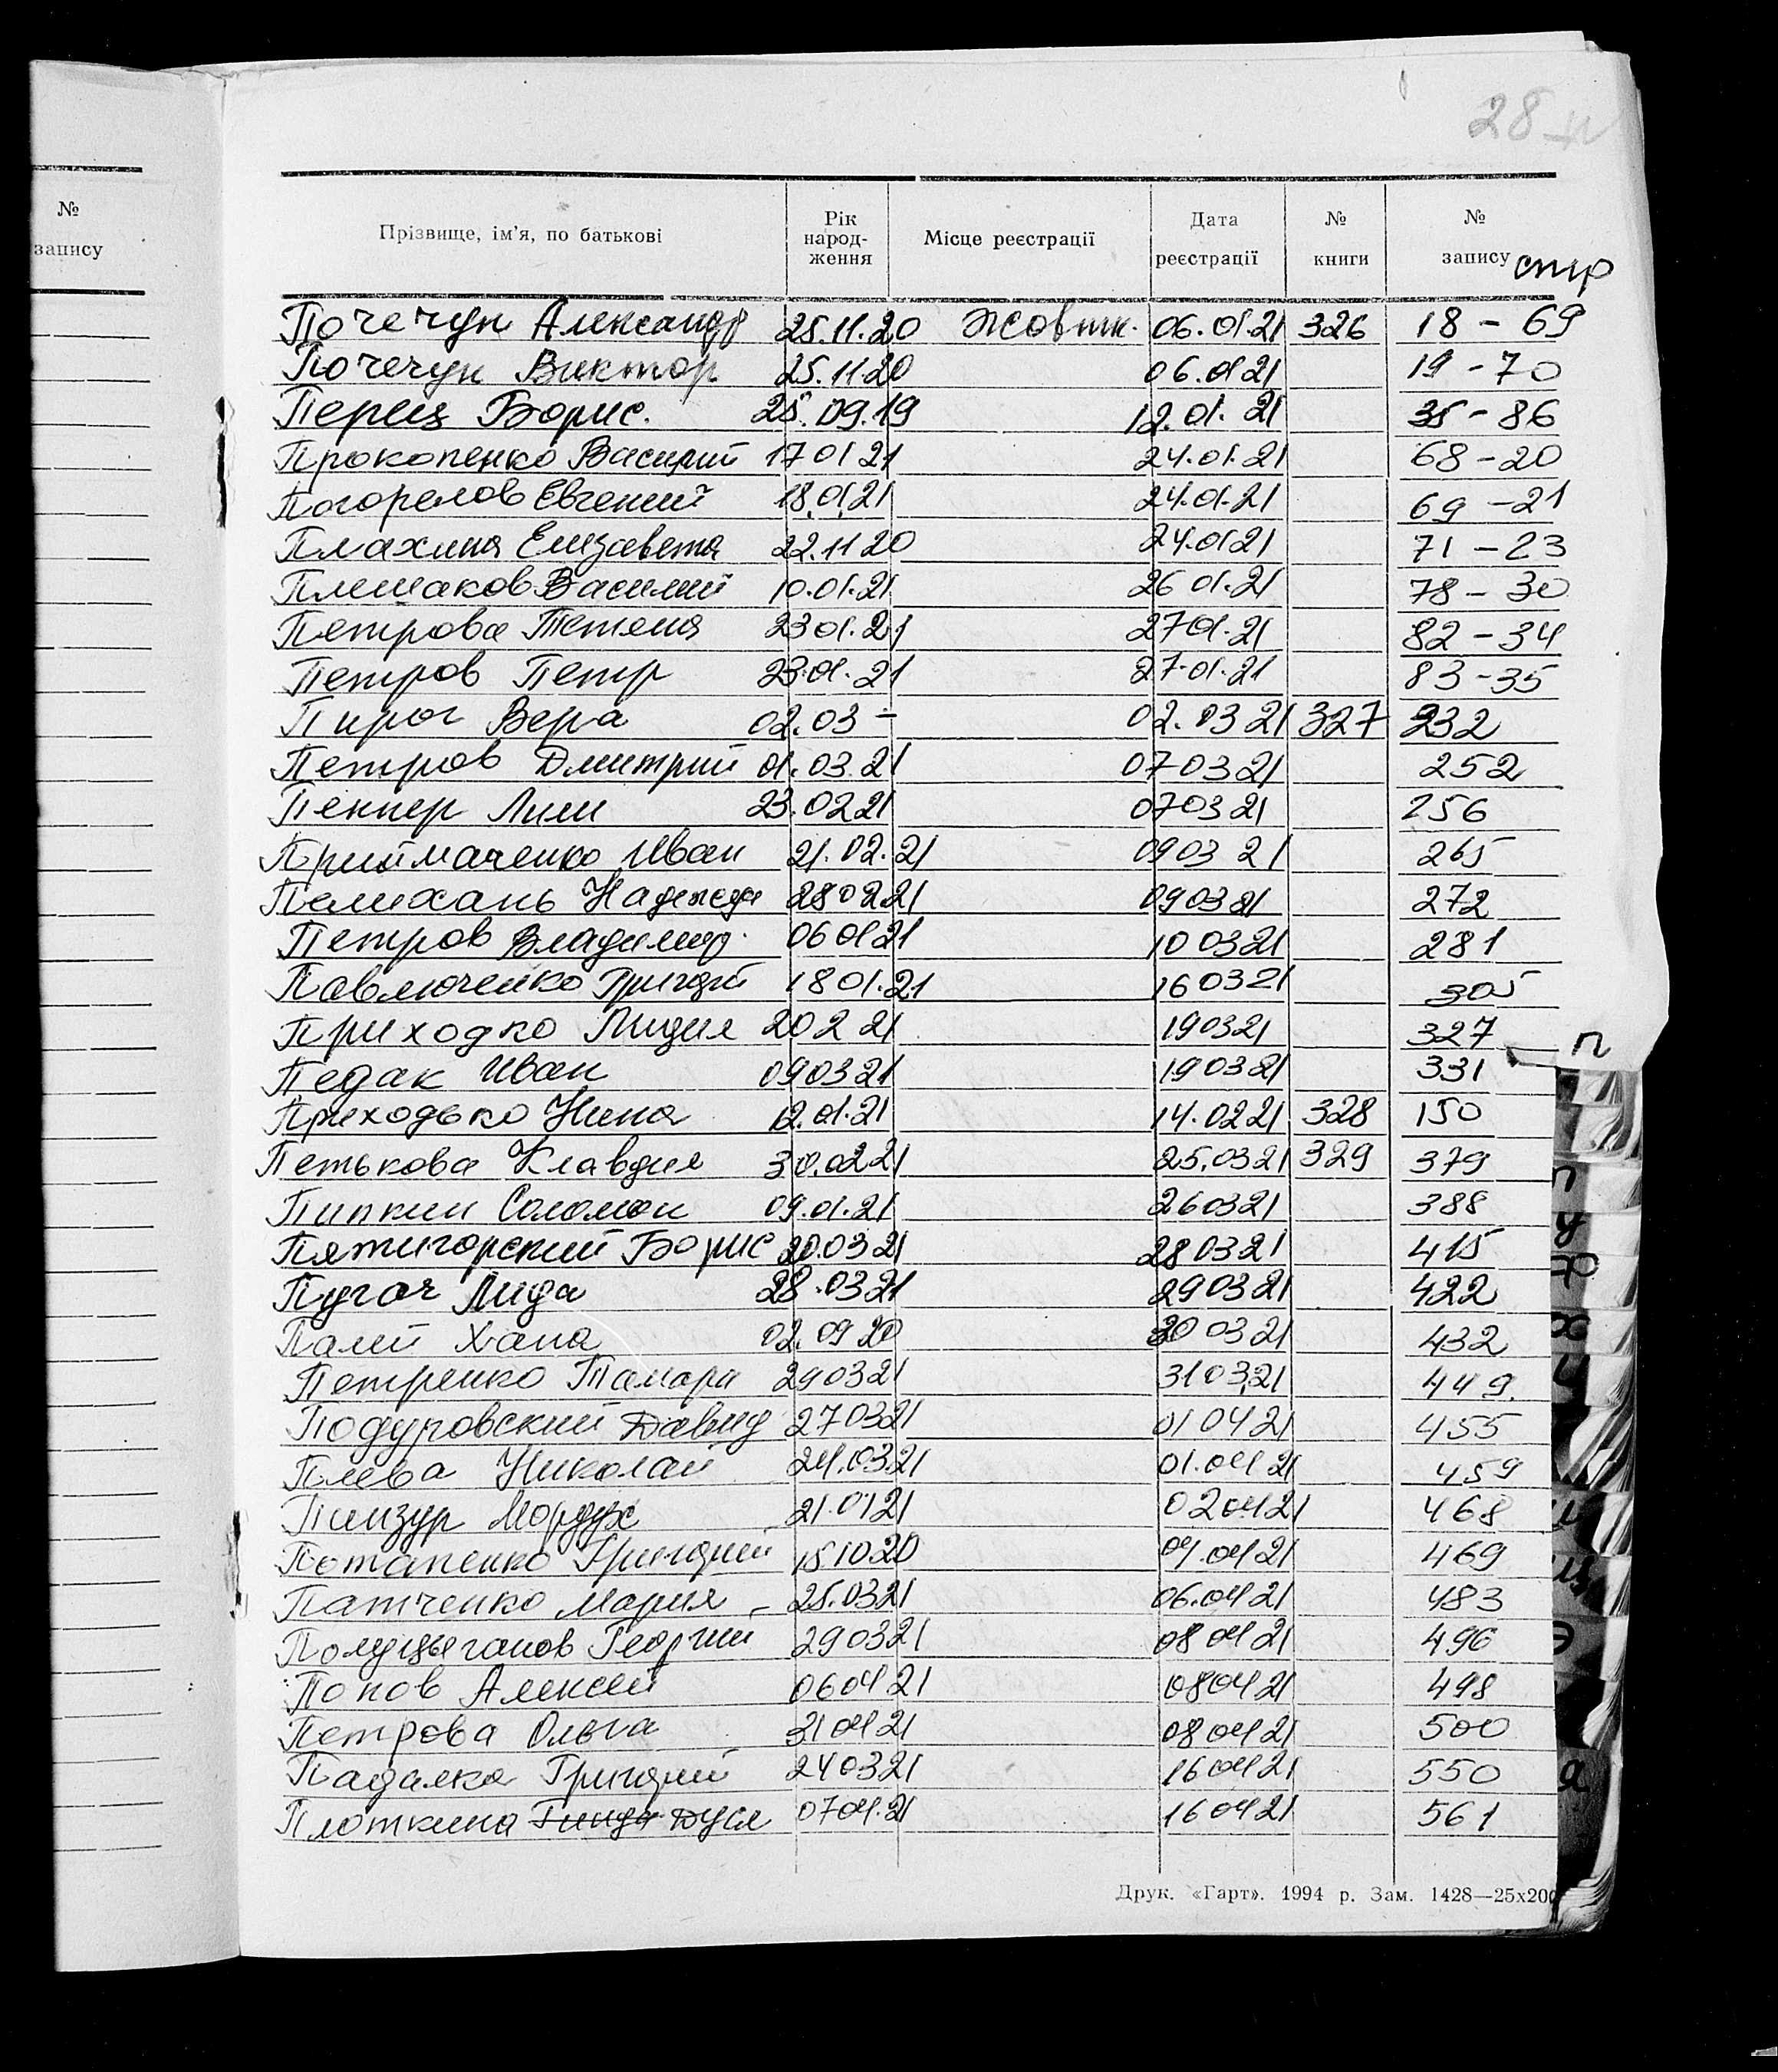 28-п
№
запису
Прізвище, ім'я, по батькові
Рік народ-ження
Місце реєстрації
Дата реєстрації
№ книги
№ запису стр
Почечун Александр 25.11.20 Жовтн. 06.01.21 326 18 - 69
Почечун Виктор 25.11.20 06.0121 19 - 70
Перец Борис. 25.09.19 12.01.21 35 - 86
Прокопенко Василий 170121 24.01.21 68 - 20
Погорелов Евгений 18.01.21 24.01.21 69 - 21
Плахлия Елизавета 22.1120 24.0121 71 - 23
Плешаков Василий 10.01.21 26 01.21 78 - 30
Петрова Тетяна 2301.21 2701.21 82 - 34
Петров Петр 23.01.21 27.01.21 83 - 35
Пирог Вера 02.03 - 02.0321 327 232
Петров Дмитрий 01.03.21 070321 252
Пекпер Лили 23.0221 070321 256
Прийомаченко Иван 21.02.21 0903 21 265
Пелихань Надежда 280221 090321 272
Петров Владимир. 060121 100321 281
Павлюченко Григорий 1801.21 160321 305
Приходко Лидия 202 21 190321 327
п
Педак Иван 090321 190321 331
Приходько Нина 12.01.21 14.0221 328 150
Петькова Клавдия 30.0221 25.0321 329 379
Пипкин Соломон 09.01.21 260321 388
Пятигорский Борис 20.0321 280321 415
Пугач Лида 28.0321 290321 422
Палей Хана 02.0920 300321 432
Петренко Тамара 290321 310321 449.
Подуровский Давид 270321 010421 455
Плева Николай 24.0321 01.0421 459
Пинзур Мордух 21.0121 020421 468
Потапенко Григорий 151020 04.0421 469
Патченко Мария - 25.0321 06.0421 483
Полуцыганов Георгий 290321 080421 496
Попов Алексей 060421 080421 498
Петрова Ольга 310421 080421 500
Падалка Григорий 240321 160421 550
Плоткина Гинда Дуся 0704.21 160421 561
Друк. «Гарт». 1994 р. Зам. 1428—25х200